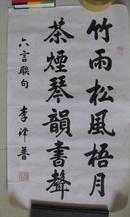 竹雨松風梧月
茶煙琴韻書聲
六言聯句
李澤普